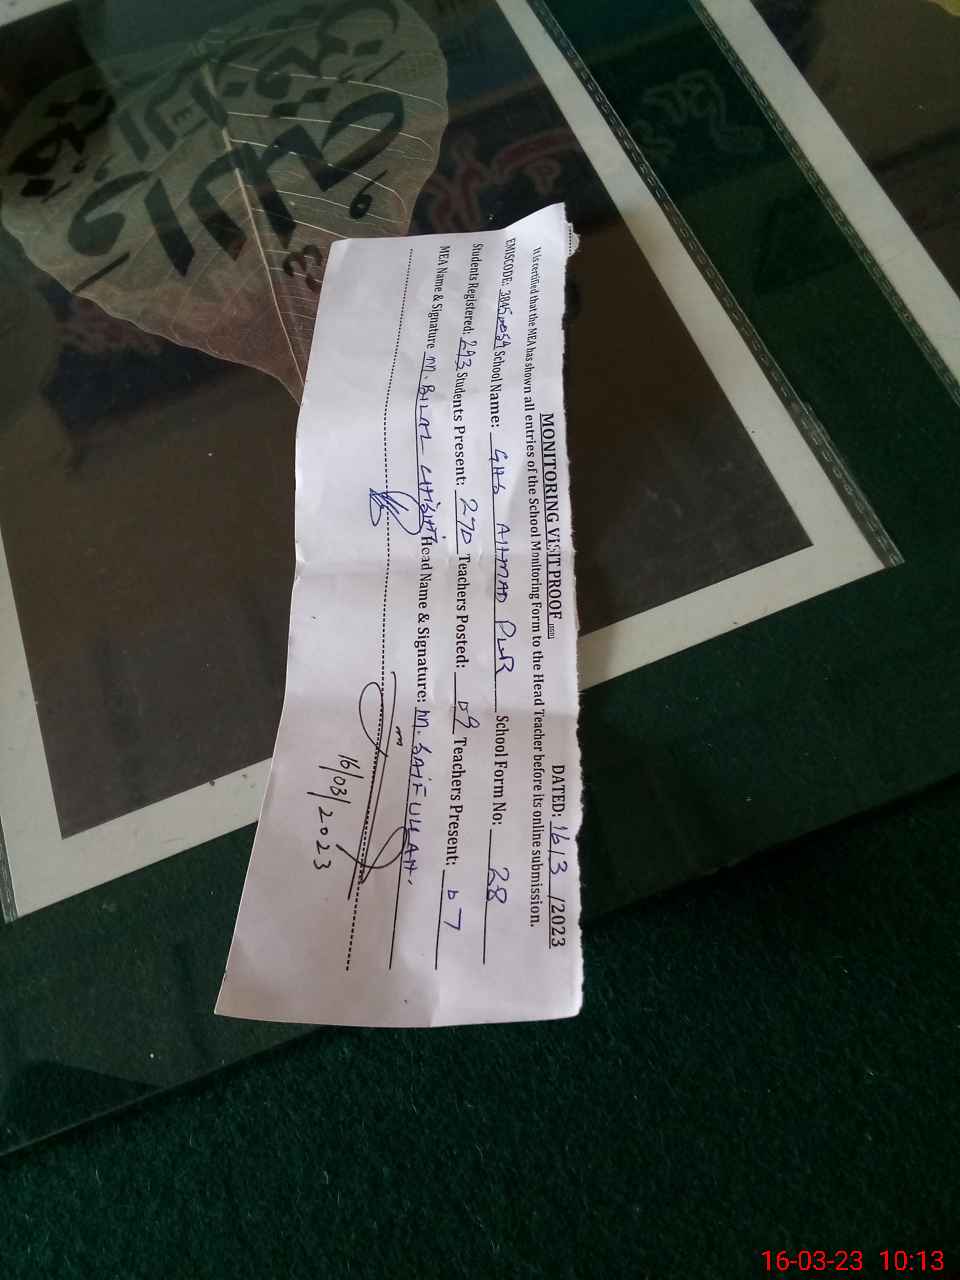 MONITORING VISIT PROOF DATED: 16/3/2023
It is certified that the MEA has shown all entries of the School Monitoring Form to the Head Teacher before its online submission.
EMISCODE: School Name: GHS AHMAD PUR School Form No: 28
Students Registered: 293 Students Present: 270 Teachers Posted: 09 Teachers Present: 07
MEA Name & Signature M. BILAL Head Name & Signature: M. SAIFULLAH.
16/03/2023
16-03-23 10:13